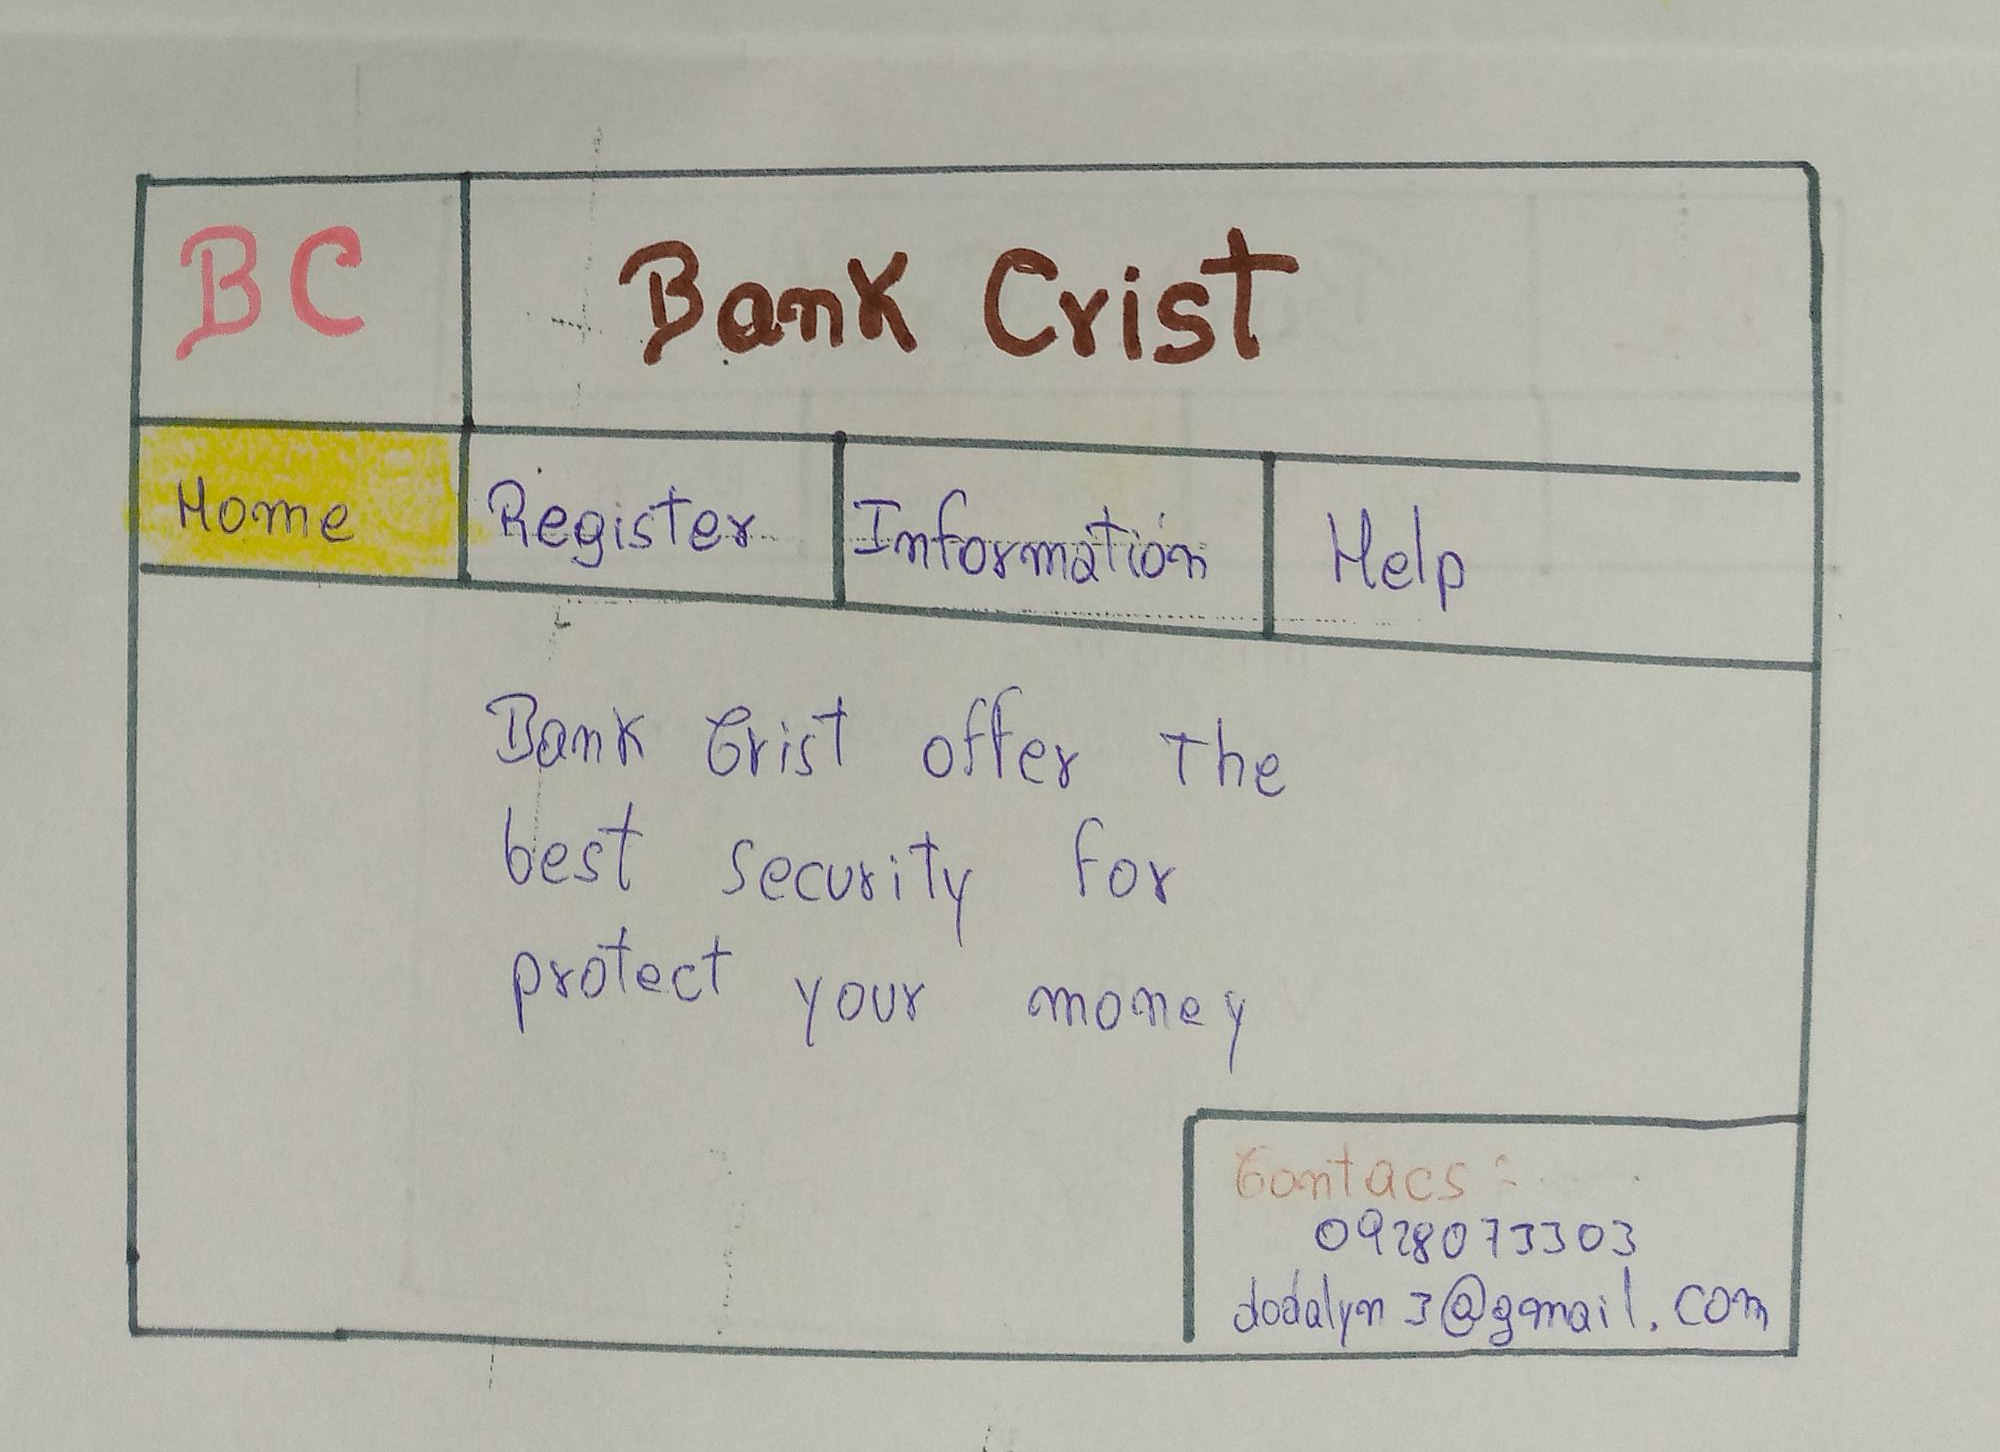 BC
Bank Crist
Home
Register
Información
Help
Bank Crist offer the
best security for
protect your money
Contacs:
0928073303
dodalyn3@gmail.com